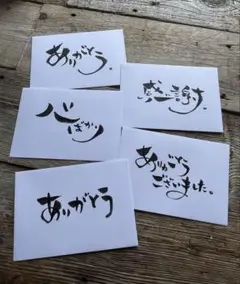 ありがとう。
感謝
心ばかり
ありがとう
ありがとう
ございました。